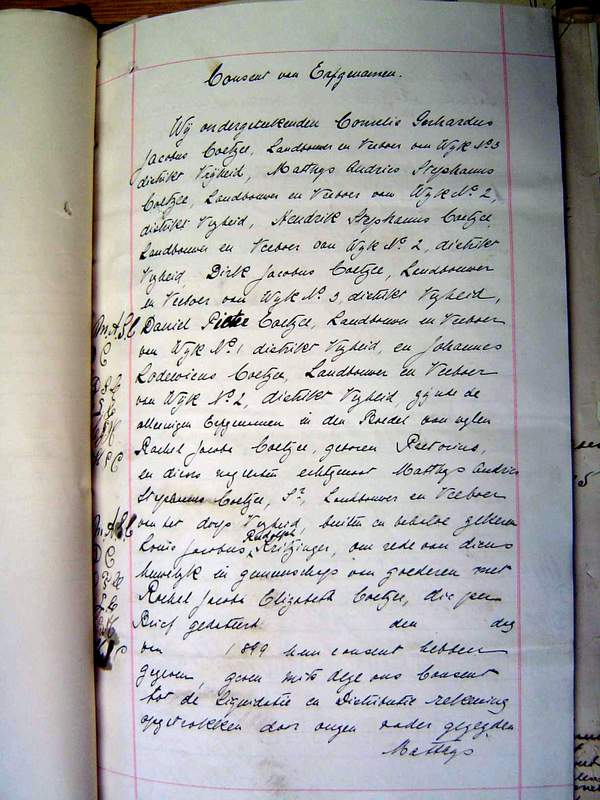 Consent van Erfgenamen.
Wij ondergeteekenden Cornelis Gerhardus
Jacobus Coetzee, Landbouwer en Veeboer van Wyk No 3
distrikt Vryheid, Matthys Andries Stephanus
Coetzee, Landbouwer en Veeboer van Wyk No. 2,
distrikt Vryheid, Hendrik Stephanus Coetzee
Landbouwer en Veeboer van Wyk No. 2, distrikt
Vryheid, Dirk Jacobus Coetzee, Landbouwer
en Veeboer van Wyk No. 3, distrikt Vryheid,
M A S C Daniel Pieter Coetzee, Landbouwer en Veeboer
van Wyk No. 1 distrikt Vryheid, en Johannes
Lodewicus Coetzee, Landbouwer en Veeboer
van Wyk No. 2, distrikt Vryheid, zijnde de
eenigen Erfgenamen in den Boedel van wylen
Rachel Jacoba Coetzee, geboren Pretorius,
en diens nagelaten echtgenoot Matthys Andries
Stephanus Coetzee, Sr., Landbouwer en Veeboer
M A S C van het dorp Vryheid, buiten en behalve
Louis Jacobus Rudolph Kritzinger, om rede van diens
huwelijk in gemeenschap van goederen met
Rachel Jacoba Elizabeth Coetzee, die per
Brief gedateerd den dag
van 1899 hun consent hebben
gegeven, geven mits deze ons Consent
tot de Liquidatie en Distributie rekening
opgetrokken door onzen vader gezegden
Matthys